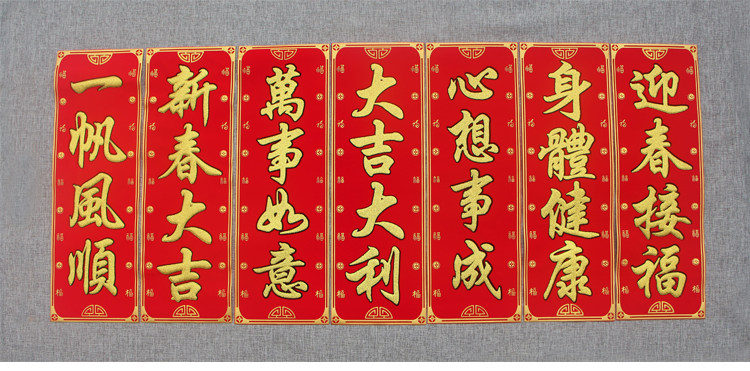 一帆風順
新春大吉
萬事如意
大吉大利
心想事成
身體健康
迎春接福